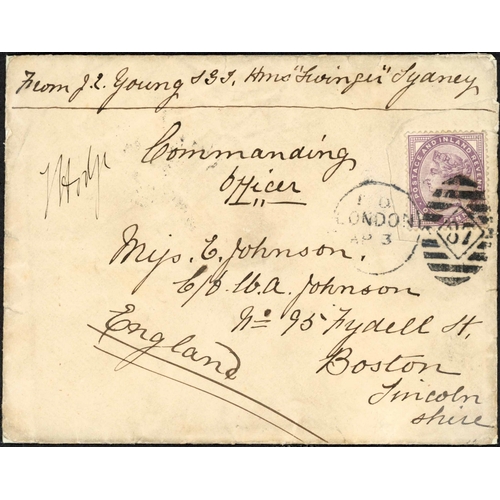 From J.C. Young SBS, Hms "Swinger" Sydney
Commanding
Officer
Miss E. Johnson,
C/o W.A. Johnson
No 95 Fydell St,
Boston
Lincoln
shire
England
POSTAGE AND INLAND REVENUE
LONDON
AP 3